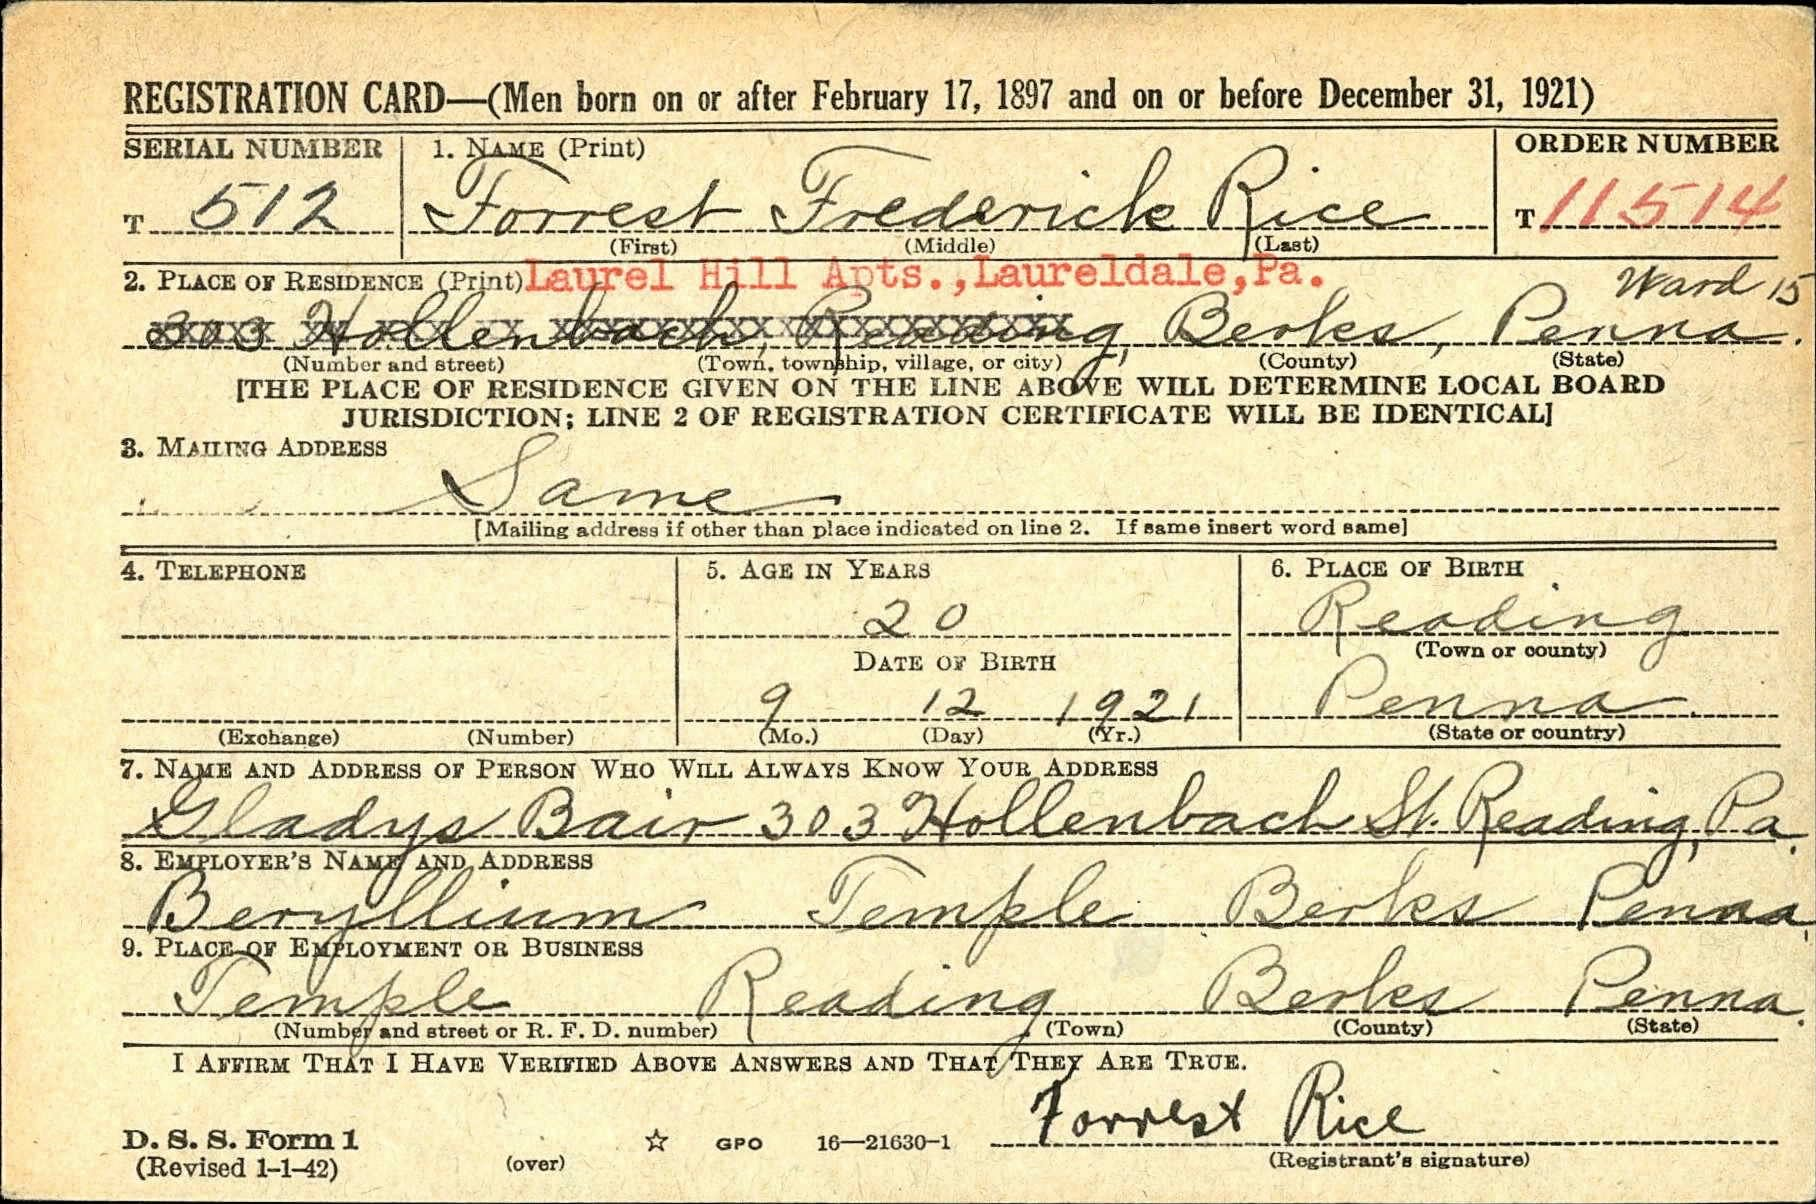 REGISTRATION CARD—(Men born on or after February 17, 1897 and on or before December 31, 1921)
SERIAL NUMBER 1. NAME (Print) ORDER NUMBER
T 512 Forrest Frederick Rice T 11514
(First) (Middle) (Last)
2. PLACE OF RESIDENCE (Print) Laurel Hill Apts., Laureldale, Pa. Ward 15
303 Hollenbach, Reading, Berks, Penna.
(Number and street) (Town, township, village, or city) (County) (State)
[THE PLACE OF RESIDENCE GIVEN ON THE LINE ABOVE WILL DETERMINE LOCAL BOARD
JURISDICTION; LINE 2 OF REGISTRATION CERTIFICATE WILL BE IDENTICAL]
3. MAILING ADDRESS
Same
[Mailing address if other than place indicated on line 2. If same insert word same]
4. TELEPHONE 5. AGE IN YEARS 6. PLACE OF BIRTH
20 Reading
(Town or county)
DATE OF BIRTH
9 12 1921 Penna.
(Exchange) (Number) (Mo.) (Day) (Yr.) (State or country)
7. NAME AND ADDRESS OF PERSON WHO WILL ALWAYS KNOW YOUR ADDRESS
Gladys Bair 303 Hollenbach St. Reading, Pa.
8. EMPLOYER'S NAME AND ADDRESS
Beryllium Temple Berks Penna.
9. PLACE OF EMPLOYMENT OR BUSINESS
Temple Reading Berks Penna.
(Number and street or R. F. D. number) (Town) (County) (State)
I AFFIRM THAT I HAVE VERIFIED ABOVE ANSWERS AND THAT THEY ARE TRUE.
Forrest Rice
D. S. S. Form 1 ☆ GPO 16—21630-1
(Revised 1-1-42) (over) (Registrant's signature)